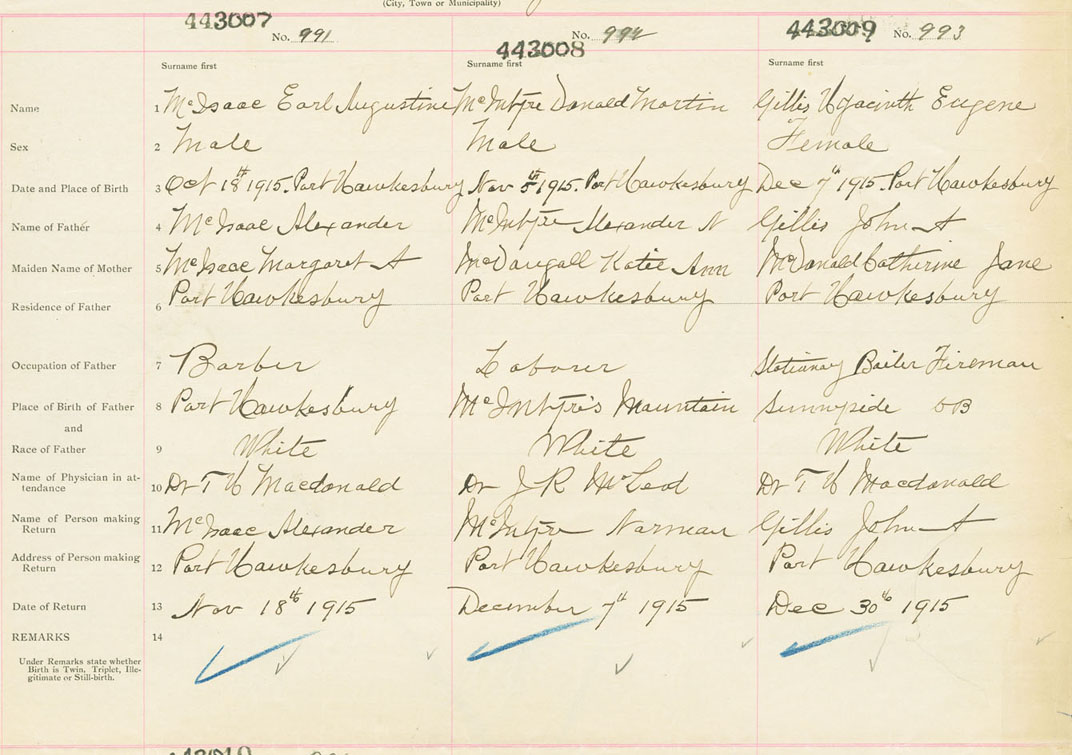 (City, Town or Municipality)
443007 No. 991
443008 No. 992
443009 No. 993
Surname first Surname first Surname first
Name 1 McIsaac Earl Augustine McIntyre Donald Martin Gillis Hyacinth Eugene
Sex 2 Male Male Female
Date and Place of Birth 3 Oct 18th 1915. Port Hawkesbury Nov 5th 1915. Port Hawkesbury Dec 7th 1915. Port Hawkesbury
Name of Father 4 McIsaac Alexander McIntyre Alexander N Gillis John A
Maiden Name of Mother 5 McIsaac Margaret A McDougall Katie Ann McDonald Catherine Jane
Residence of Father 6 Port Hawkesbury Port Hawkesbury Port Hawkesbury
Occupation of Father 7 Barber Laborer Stationary Boiler Fireman
Place of Birth of Father 8 Port Hawkesbury McIntyre's Mountain Sunnyside CB
and
Race of Father 9 White White White
Name of Physician in at-
tendance 10 Dr T H Macdonald Dr J R McLeod Dr T H Macdonald
Name of Person making
Return 11 McIsaac Alexander McIntyre Norman Gillis John A
Address of Person making
Return 12 Port Hawkesbury Port Hawkesbury Port Hawkesbury
Date of Return 13 Nov 18th 1915 December 7th 1915 Dec 30th 1915
REMARKS 14
Under Remarks state whether
Birth is Twin, Triplet, Ille-
gitimate or Still-birth.